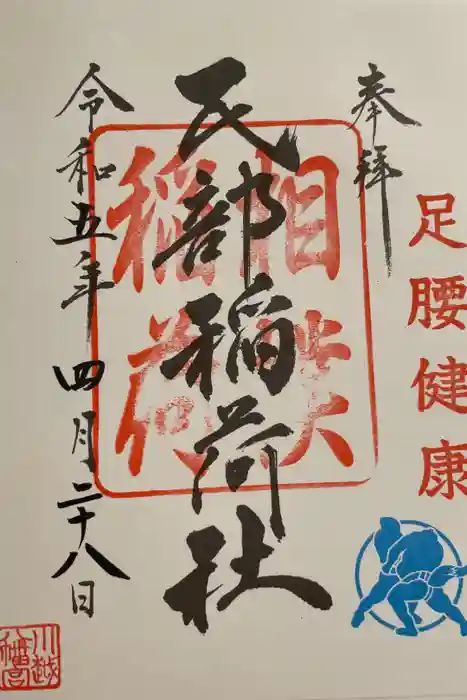 奉拝
足腰健康
民部稲荷社
相撲
稲荷
令和五年四月二十八日
川越
八幡宮